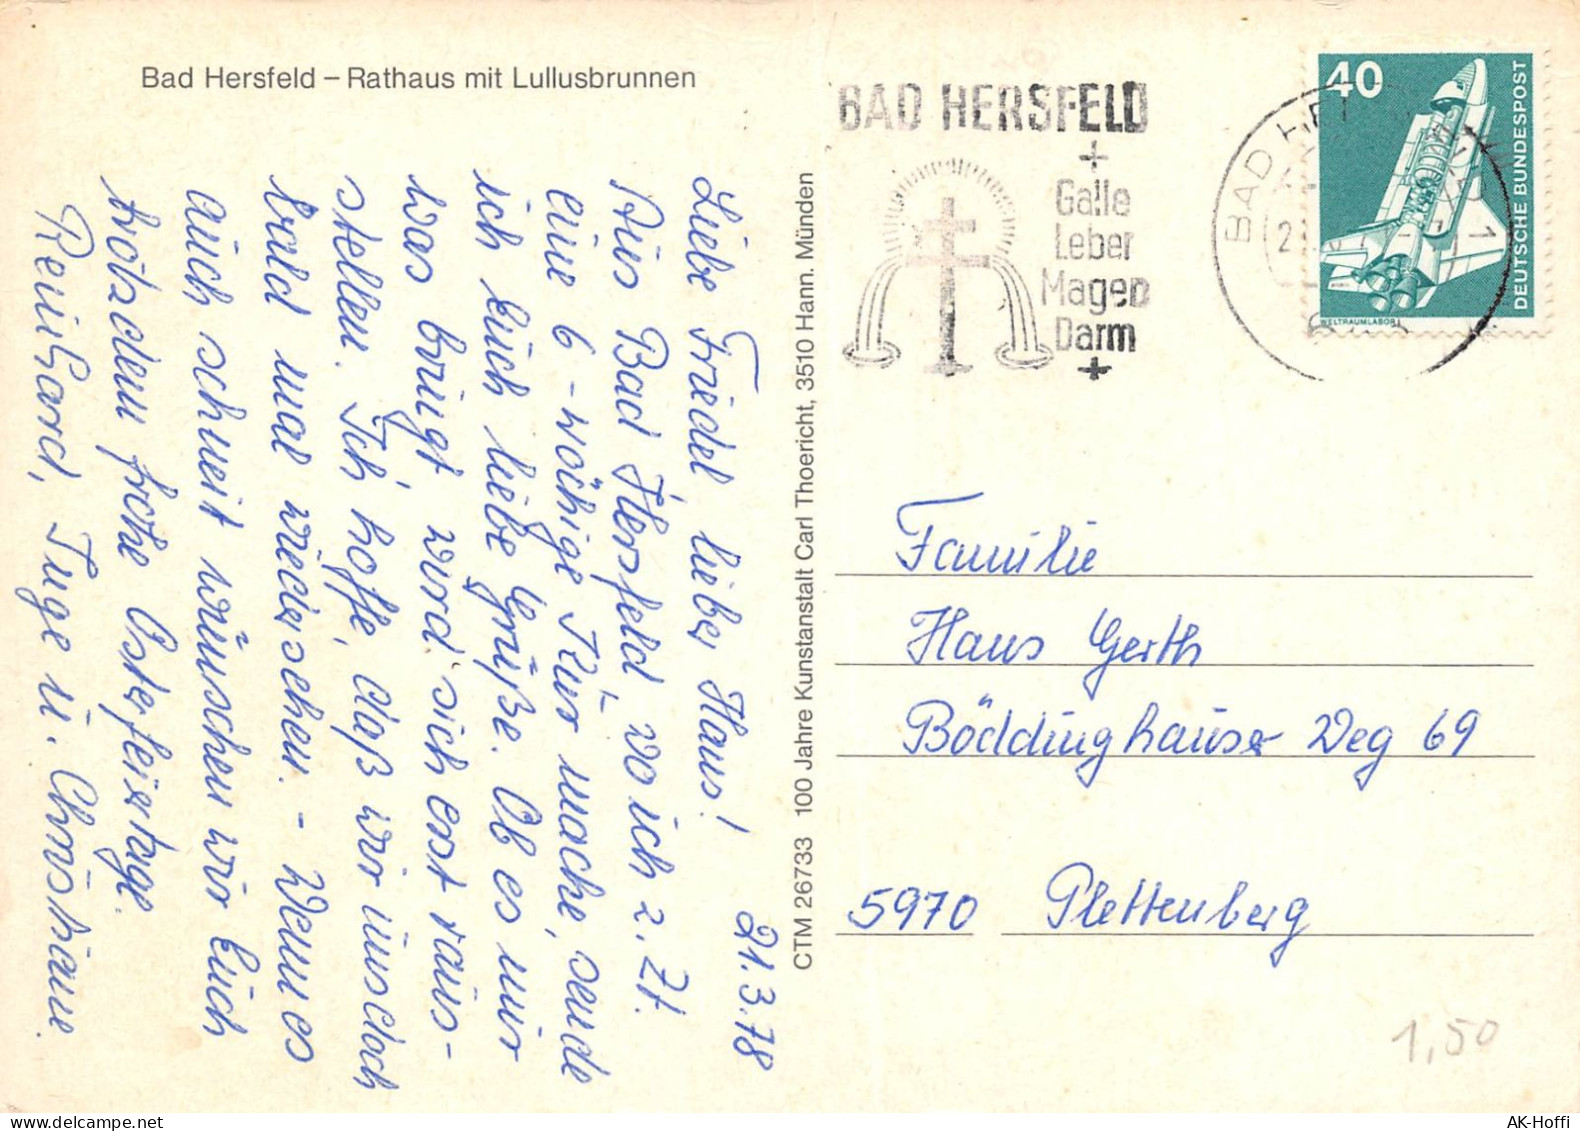 Bad Hersfeld – Rathaus mit Lullusbrunnen
21.3.78
Liebe Friedel, lieber Hans!
Aus Bad Hersfeld, wo ich z. Zt.
eine 6-wöchige Kur mache, sende
ich Euch liebe Grüße. Ob es mir
was bringt wird sich erst raus-
stellen. Ich hoffe, daß wir uns doch
bald mal wiedersehen. - Wenn es
auch schneit wünschen wir Euch
trotzdem frohe Osterfeiertage.
Reinhard, Inge u. Christiane.
CTM 26733 100 Jahre Kunstanstalt Carl Thoericht, 3510 Hann. Münden
BAD HERSFELD
+
Galle
Leber
Magen
Darm
+
BAD HE
1
40
DEUTSCHE BUNDESPOST
WELTRAUMLABOR
Familie
Hans Gerth
Böddinghauser Weg 69
5970 Plettenberg
1,50
AK-Hoffi